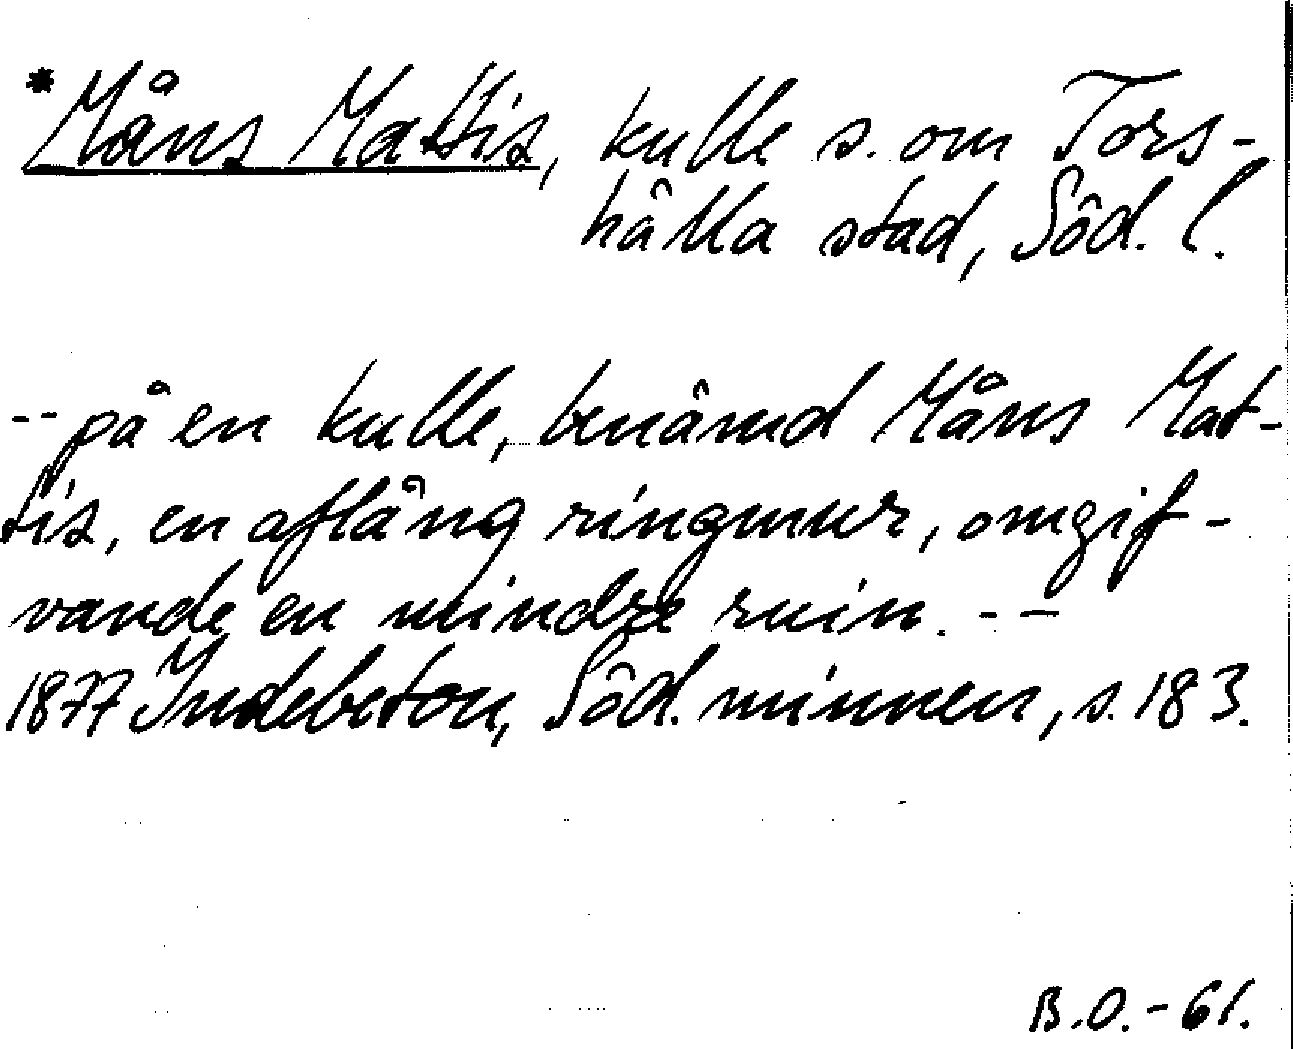 *Måns Mattis, kulle s. om Tors-
hälla stad, Söd. l.
-- på en kulle, benämd Måns Mat-
tis, en aflång ringmur, omgif-
vande en mindre ruin. - -
1877 Indebetou, Söd. minnen, s. 183.
B.O. - 61.